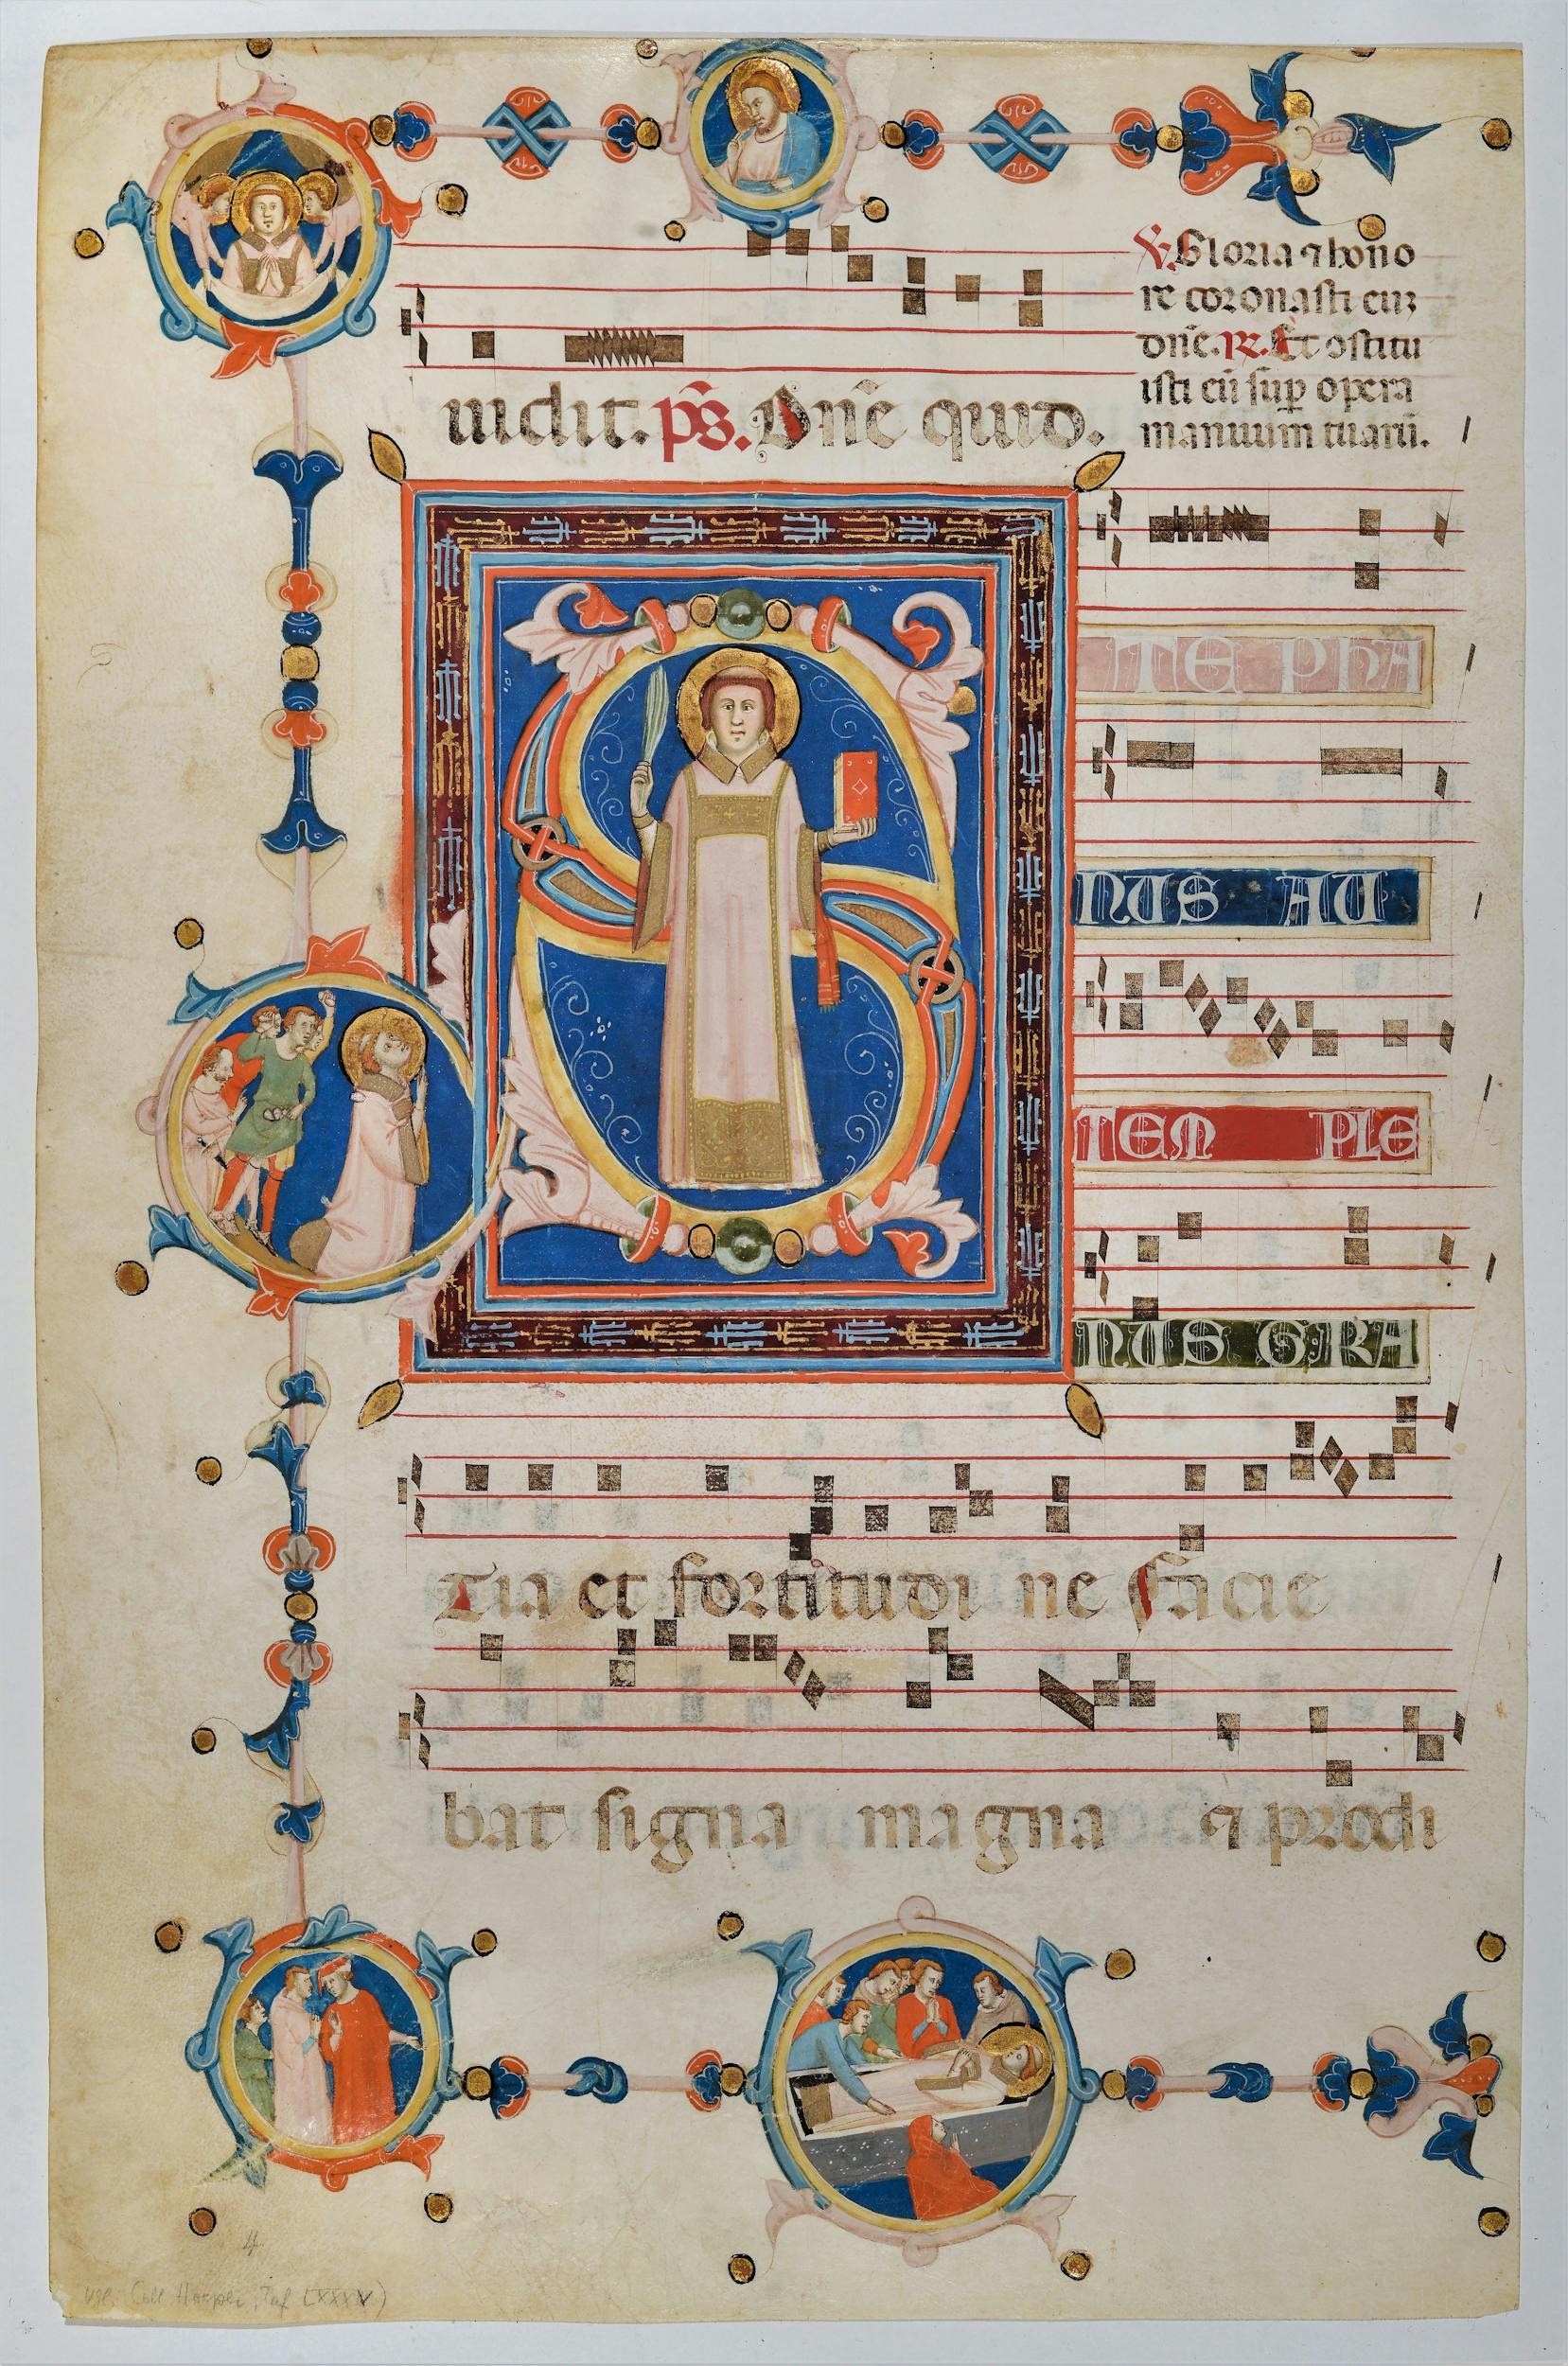 uidit. p̃s. Dn̄e quid.
V. Gloria ⁊ hono
re coronasti euʒ
dn̄e. R. Et ɔstitu
isti eū sup̱ opera
manuum tuaruꝫ.
S
TE PhA
NUS AU
TEM PLE
NUS GRA
Tia et fortitudi ne facie
bat signa magna ⁊ prodi
4
Coll. Hoepli, Taf LXXXV)